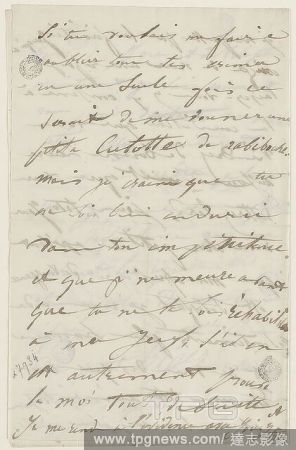 Si tu voulais me faire
oublier tous tes crimes
en une seule fois ce
serait de me donner une
petite culotte de
mais je crains que tu
ne sois bien endurci
dans ton impénitence
et que je ne meure avant
que tu ne te sois réhabilité
à mes yeux s'il en
est autrement
le moi tout de suite
Je me rends à
27984
www.tpgnews.com/達志影像